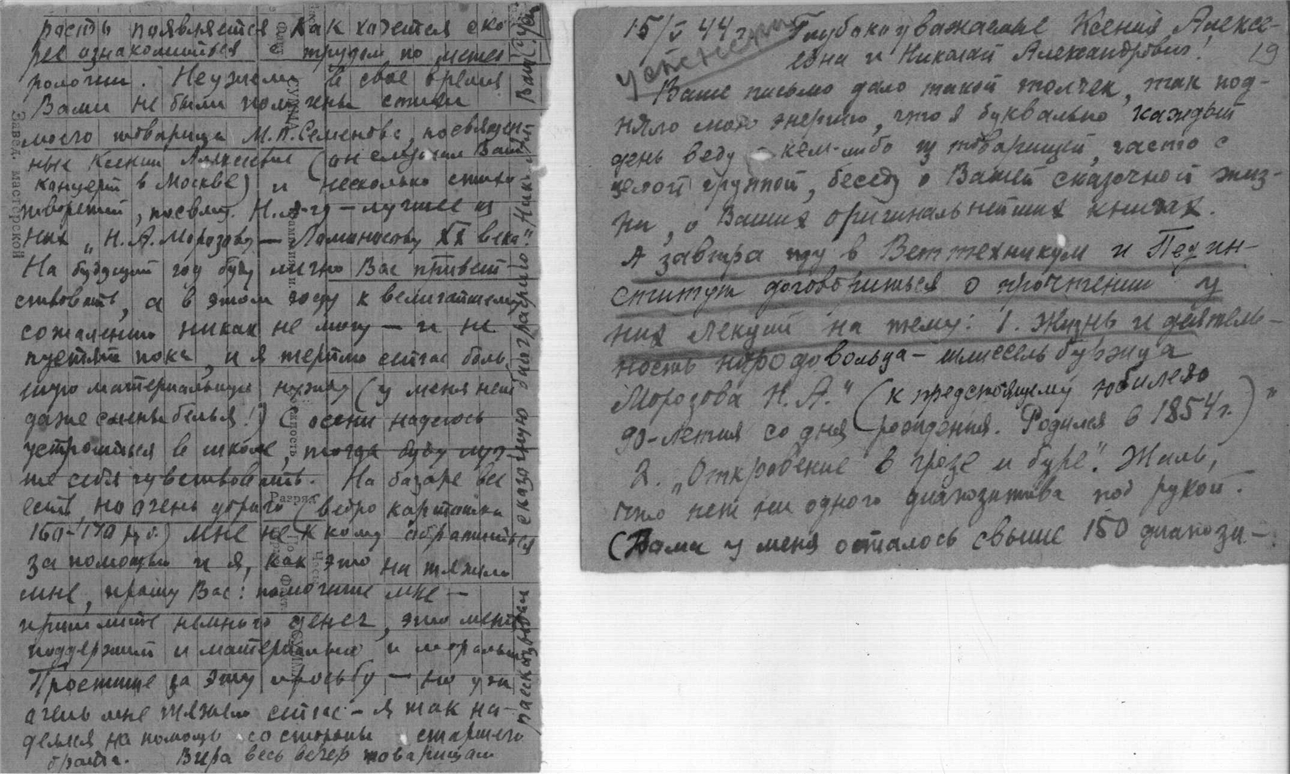 15/V 44 г. Глубокоуважаемые Ксения Алексе-
евна и Николай Александрович!
19
Ваше письмо дало такой толчек, так под-
няло мою энергию, что я буквально каждый
день веду с кем-либо из товарищей, часто с
целой группой, беседу о Вашей сказочной жиз-
ни, о Ваших оригинальнейших книгах.
А завтра иду в Веттехникум и Педин-
ститут договориться о прочтении у
них лекций на тему: 1. Жизнь и деятель-
ность народовольца – шлиссельбуржца
Морозова Н. А." (к предстоящему юбилею
90-летия со дня рождения. Родился в 1854 г.)"
2. „Откровение в грозе и буре". Жаль,
что нет ни одного диапозитива под рукой.
(Дома у меня осталось свыше 150 диапози-
рость появляется. Как хочется ско
рее ознакомиться с трудом по метео
рологии. Неужели в свое время
Вами не были получены стихи
моего товарища М. П. Семенова, посвящен
ные Ксении Алексеевне (он слушал Ваш
концерт в Москве) и несколько стихо
творений, посвящ. Н. А-чу – лучшее из
них „Н. А. Морозову – Ломоносову XX века".
На будущий год буду лично Вас приветст
ствовать, а в этом году к величайшему
сожалению никак не могу – и не
пустят пока, и я терплю сейчас боль
шую материальную нужду (у меня нет
даже смены белья!) С осени надеюсь
устроиться в школе, тогда буду луч
ше себя чувствовать. На базаре все
есть, но очень дорого (ведро картошки
160-170 руб.) Мне не к кому обратиться
за помощью и я, как это ни тяжело
мне, прошу Вас: помогите мне –
пришлите немного денег, это меня
поддержит и материально и морально
Простите за эту просьбу – но уж
очень мне тяжело сейчас – я так на-
деялся на помощь со стороны старшего
брата. Вчера весь вечер товарищам
рассказывал сказочную биографию Ник. Ваш
Завед. мастерской
Разряд